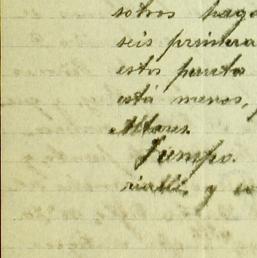 sotros haga
seis primera
estos punto
está menos,
Altares.
Tiempo.
y co